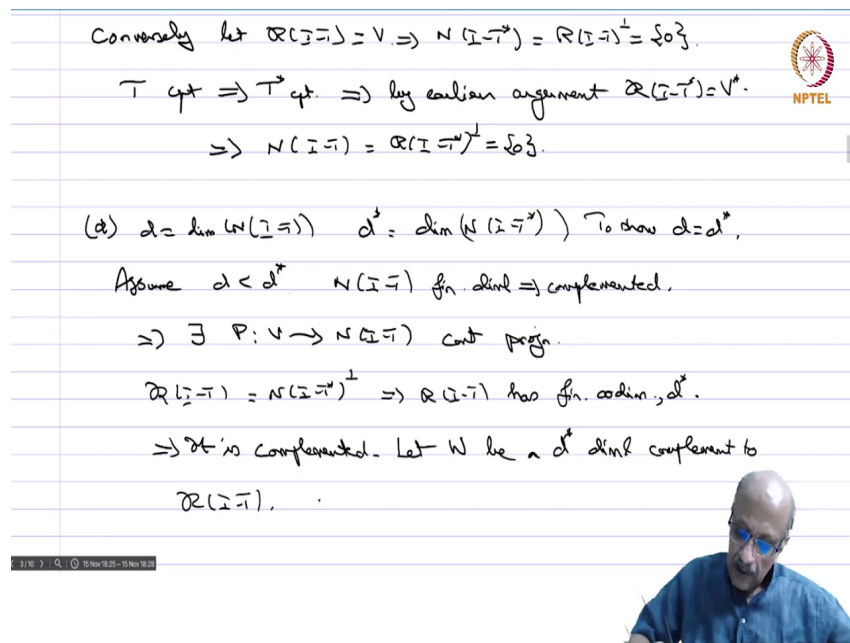 Conversely let R(I-T) = V. => N(I-T*) = R(I-T)^⊥ = {0}.
T cpt => T* cpt. => by earlier argument R(I-T*) = V*.
=> N(I-T) = R(I-T*)^⊥ = {0}.
(d) d = dim(N(I-T)) d* = dim(N(I-T*)) To show d=d*.
Assume d < d* N(I-T) fin. diml => complemented.
=> ∃ P: V -> N(I-T) cont projn.
R(I-T) = N(I-T*)^⊥ => R(I-T) has fin. codim, d*.
=> It is complemented. Let W be a d* diml complement to
R(I-T).
NPTEL
3/10 15 Nov 18:25 – 15 Nov 18:28